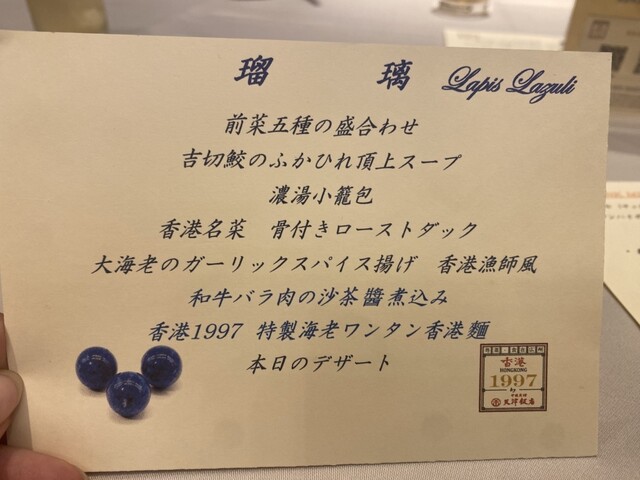 瑠璃 Lapis Lazuli
前菜五種の盛合わせ
吉切鮫のふかひれ頂上スープ
濃湯小籠包
香港名菜 骨付きローストダック
大海老のガーリックスパイス揚げ 香港漁師風
和牛バラ肉の沙茶醬煮込み
香港1997 特製海老ワンタン香港麵
本日のデザート
HONGKONG
1997